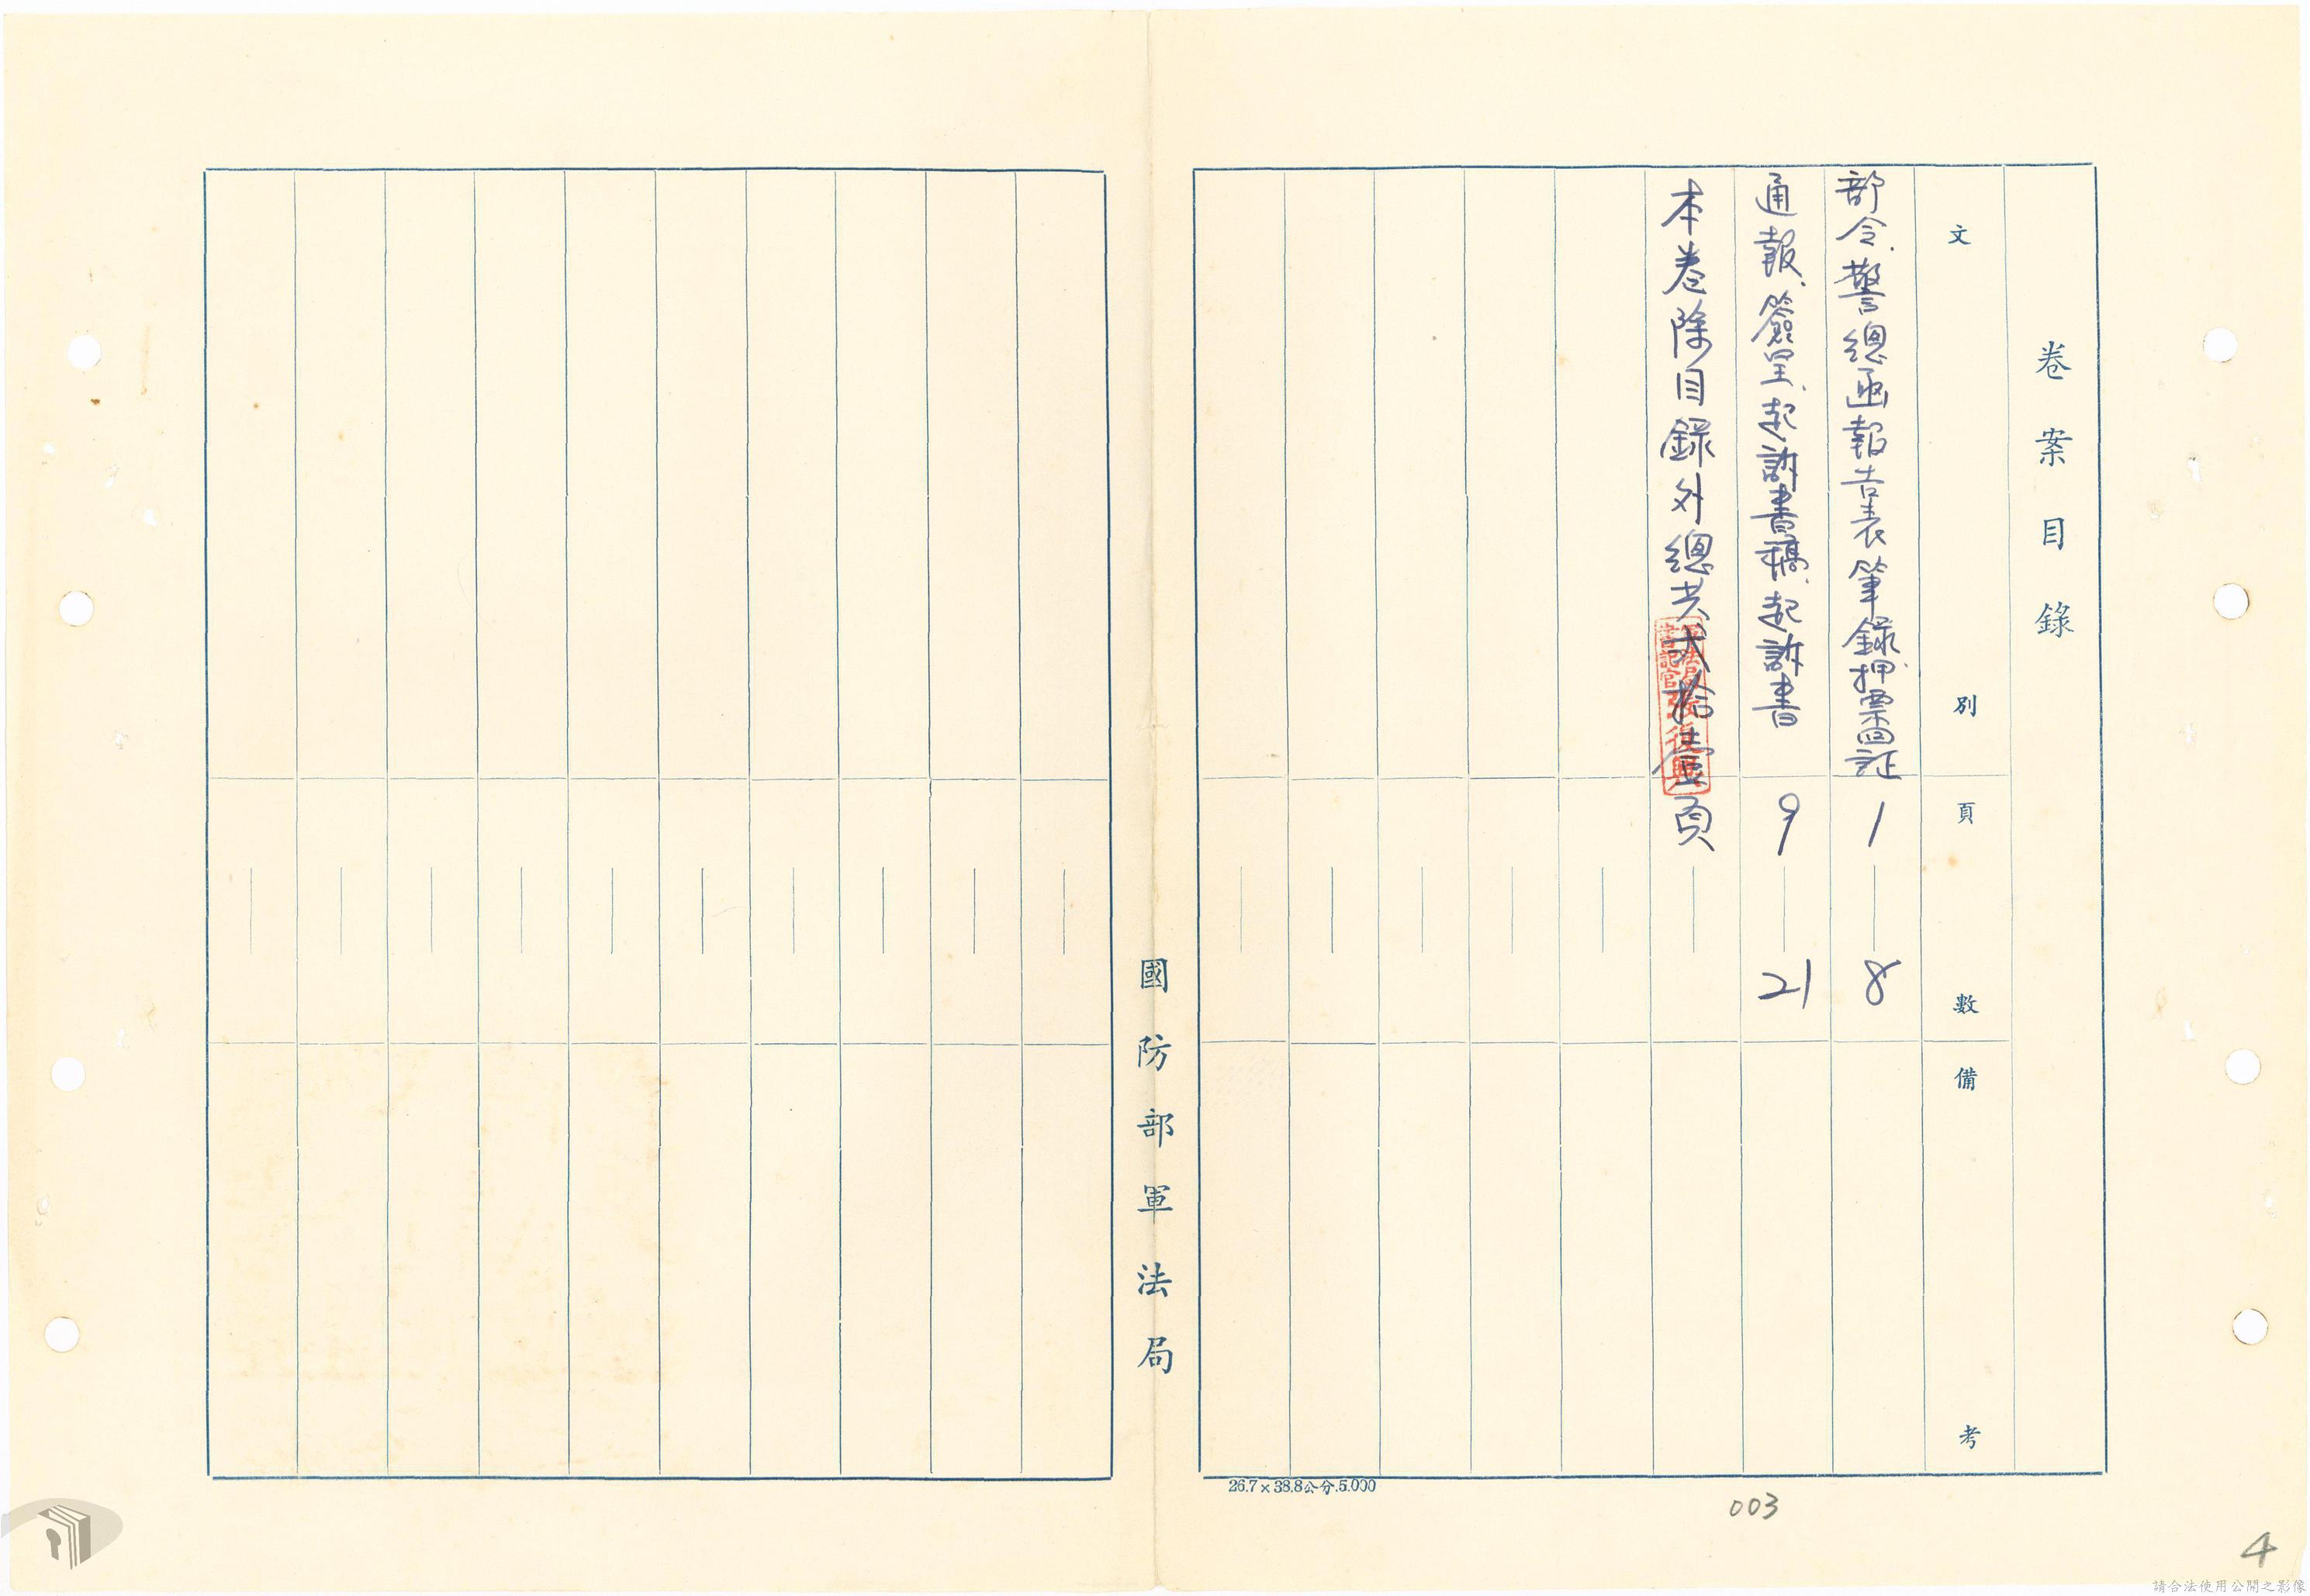 卷案目錄
文別
頁數
備考
部令、警總函報告表筆錄、押票回証
1—8
通報、簽呈、起訴書稿、起訴書
9—21
本卷除目錄外總共拾壹頁
書記官
國防部軍法局
26.7×38.8公分.5.000
003
4
請合法使用公開之影像